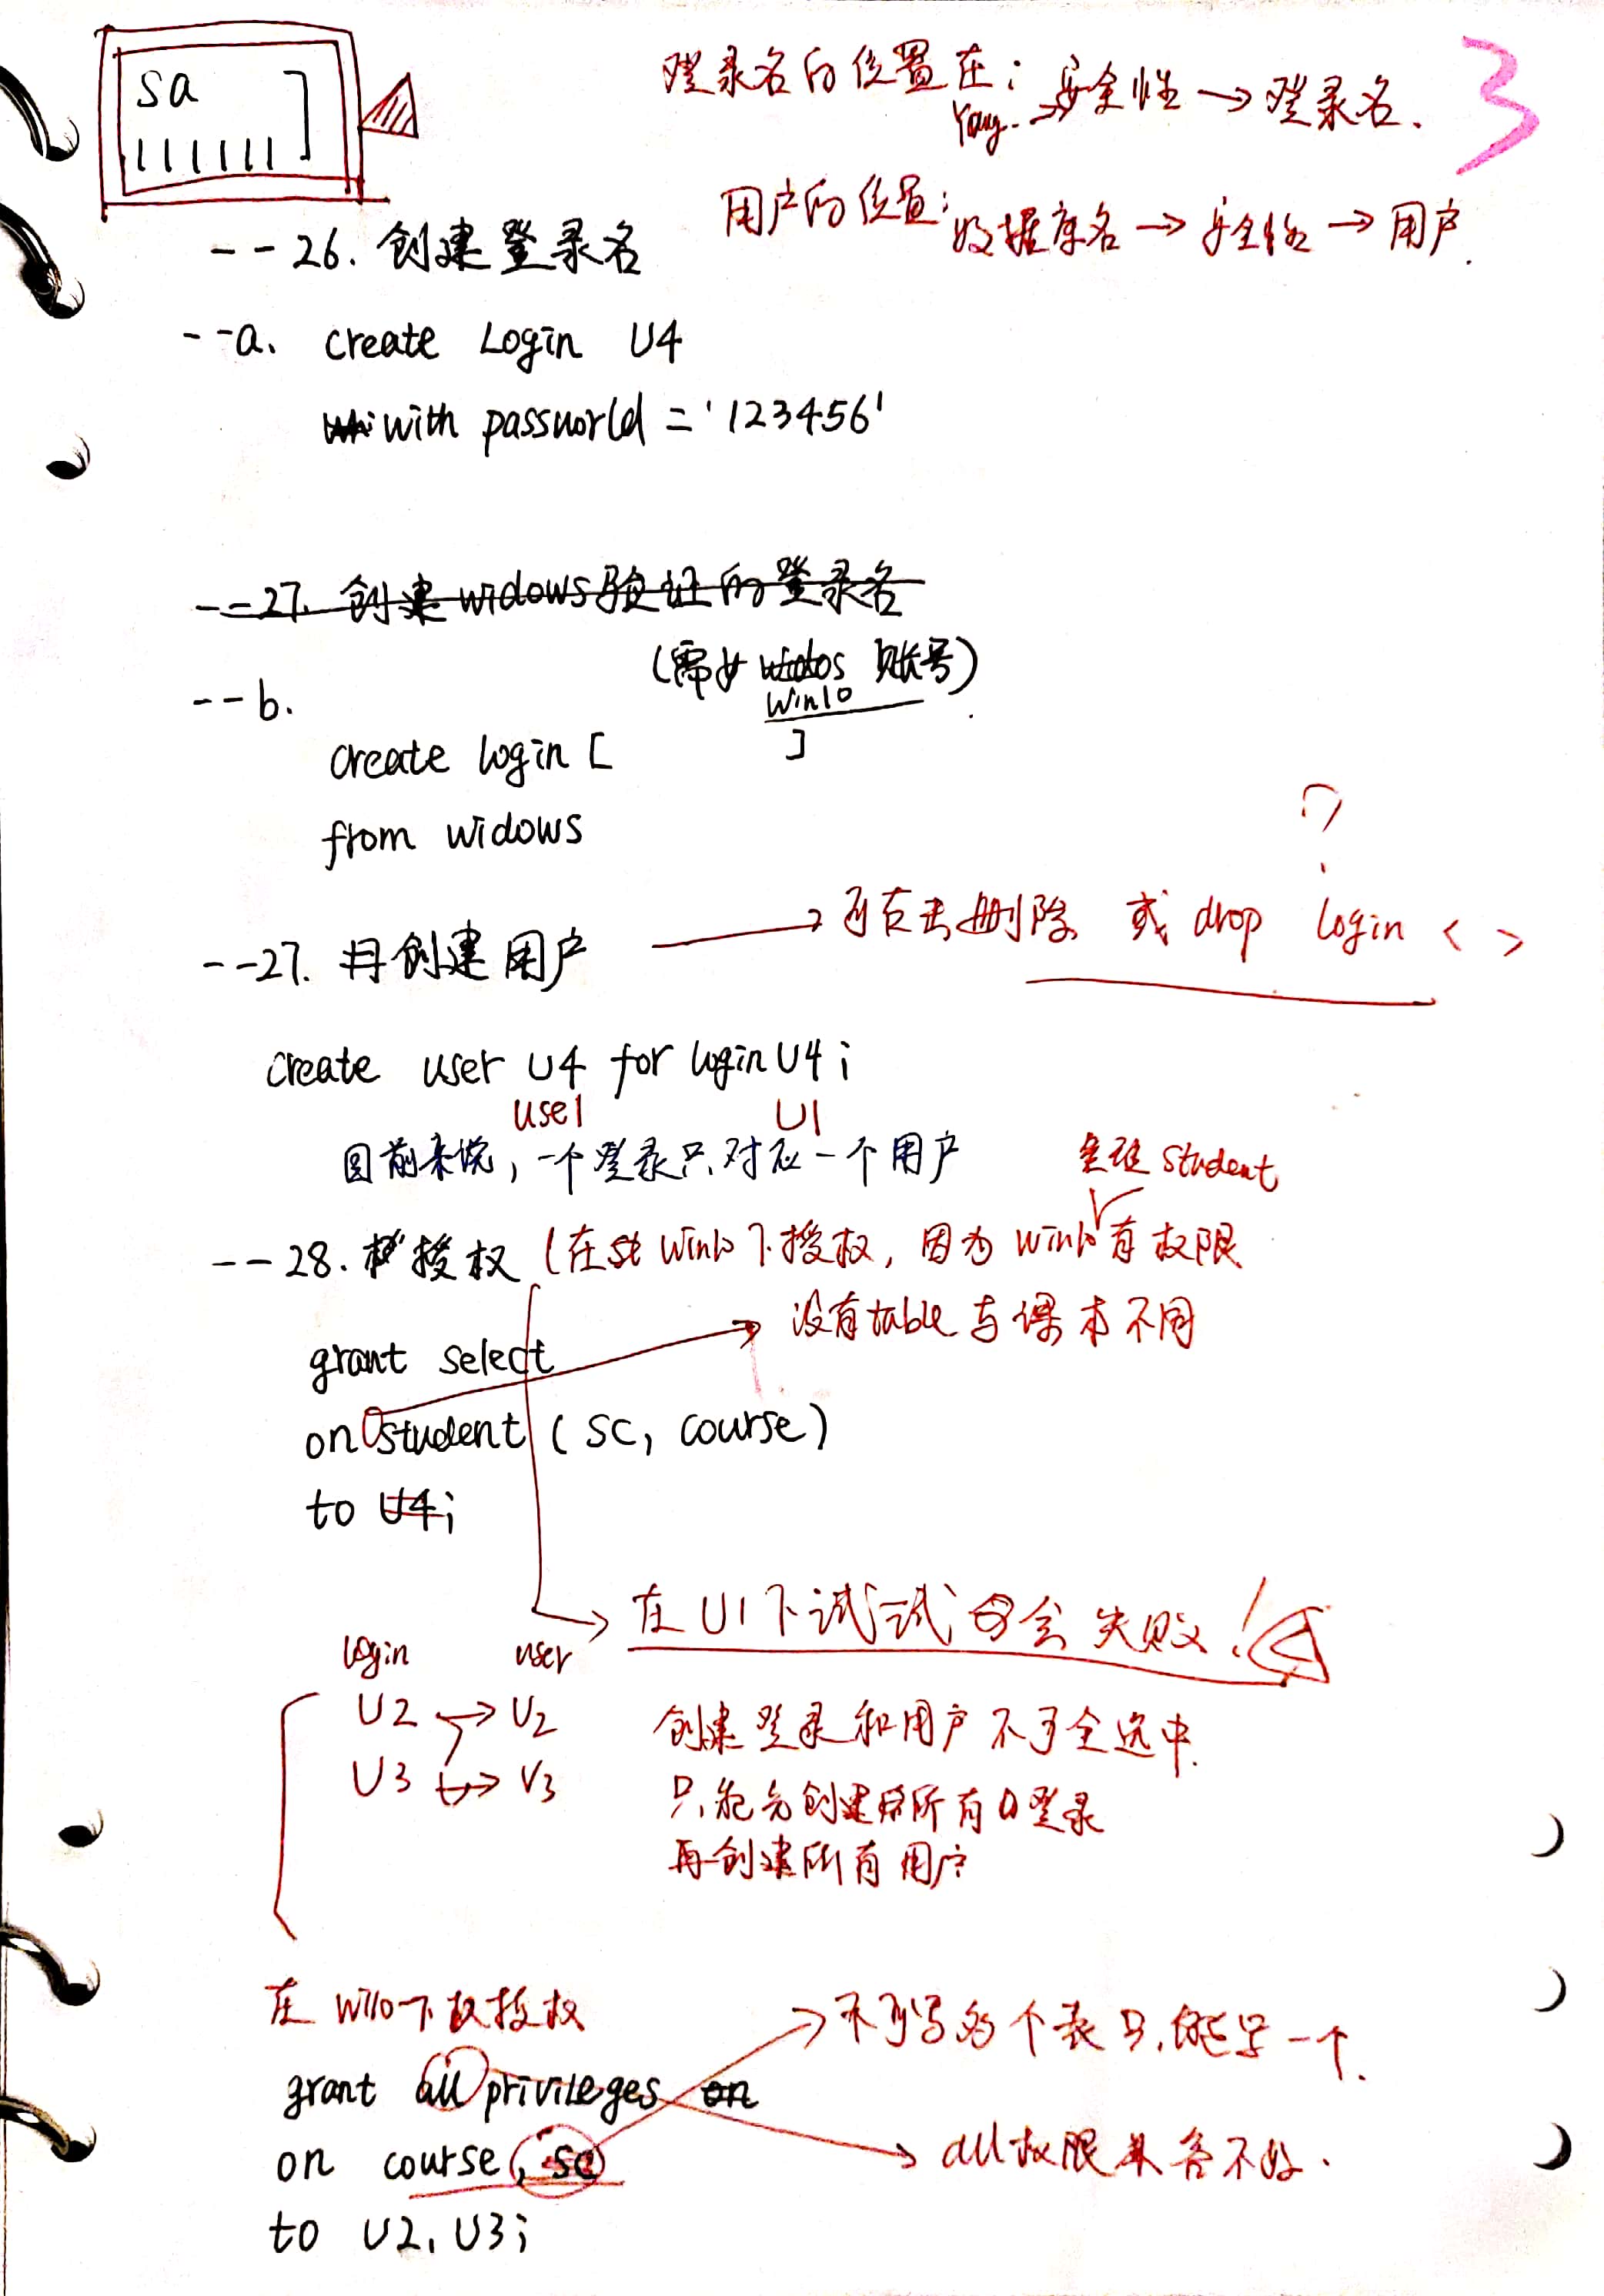 sa
111111
登录名的位置在: 安全性 → 登录名.
3
用户的位置: 数据库名 → 安全性 → 用户.
--26. 创建登录名
--a. create Login U4
with passworld = '123456'
--27. 创建widows验证的登录名
(需要 账号)
Win10
--b.
create login [ ]
from widows
?
--27. 创建用户 → 可右击删除 或 drop login < >
create user U4 for login U4;
use1 U1
目前来说, 一个登录只对应一个用户
student
--28. 授权 (在 Win10下授权, 因为 win10有权限
没有table与课本不同
grant select
on student (sc, course)
to U4;
在U1下试试 会失败!
login user
U2 → U2
U3 → U3
创建登录和用户不可全选中.
只能先创建所有 登录
再创建所有用户
在 W110下 授权
不可写多个表只能写一个.
grant all privileges on
on course, sc
all权限兼容不好.
to U2, U3;